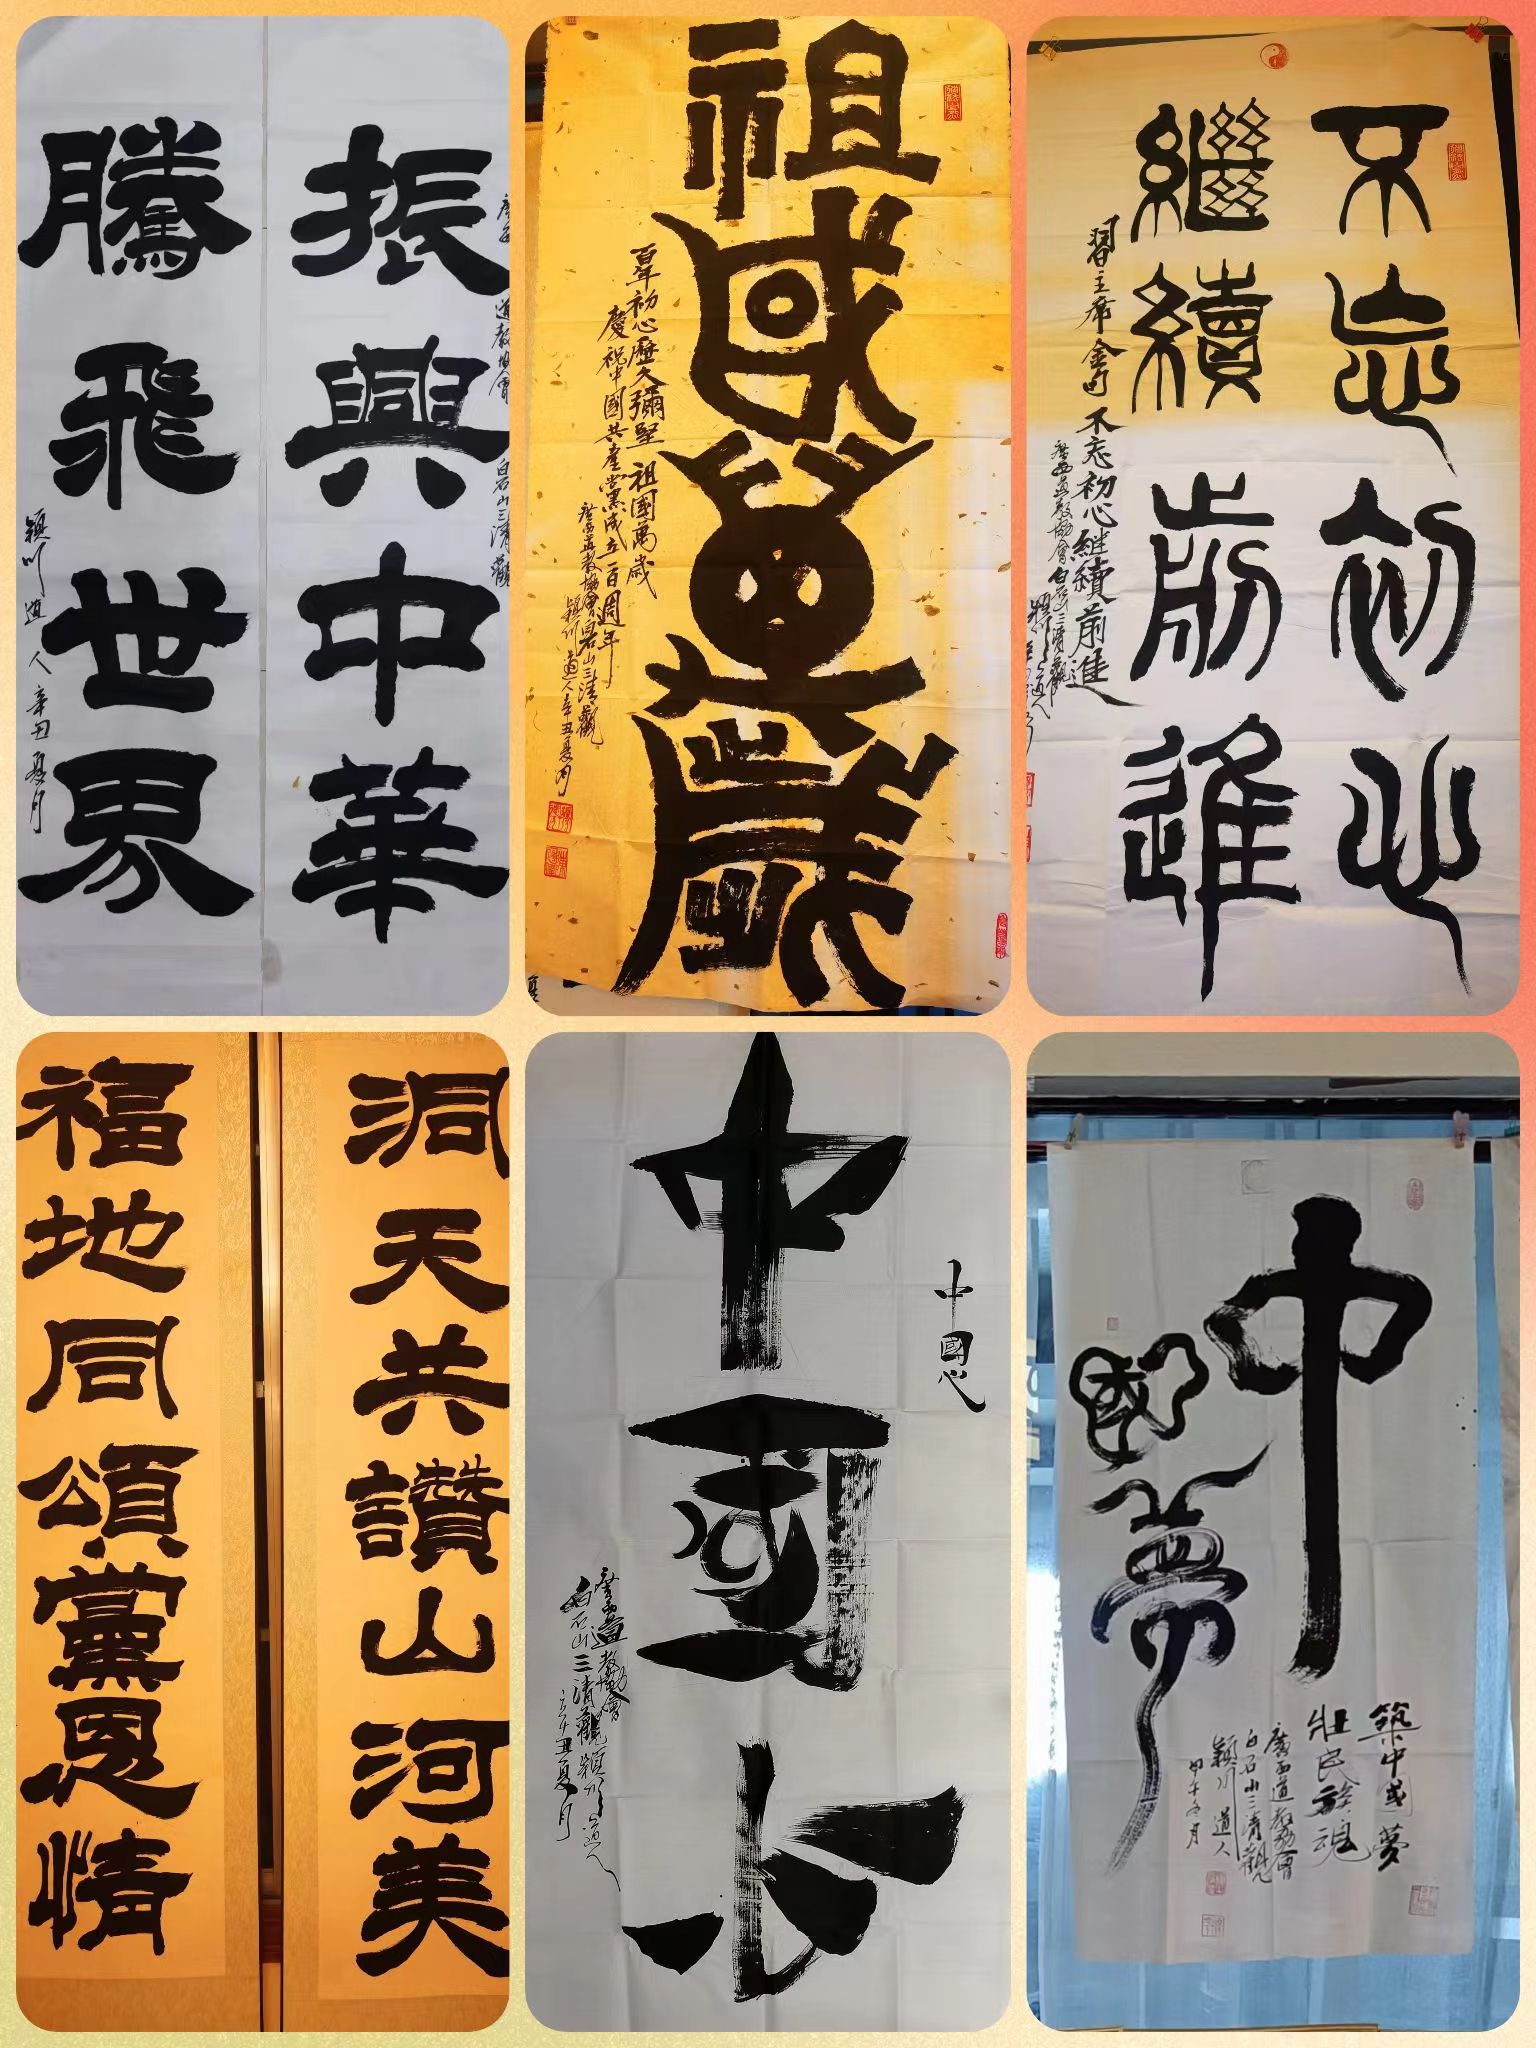 振興中華
騰飛世界
道教協會 白石山三清觀
穎川道人辛丑夏月
祖國萬歲
百年初心歷久彌堅 祖國萬歲
慶祝中國共產黨成立一百週年
廣西道教協會白石山三清觀
穎川道人辛丑夏月
不忘初心
繼續前進
習主席金句 不忘初心繼續前進
廣西道教協會白石山三清觀
洞天共讚山河美
福地同頌黨恩情
中國心
中國心
廣西道教協會
白石山三清觀穎川道人
辛丑夏月
中
國夢
築中國夢
壯民族魂
廣西道教協會
白石山三清觀
穎川道人